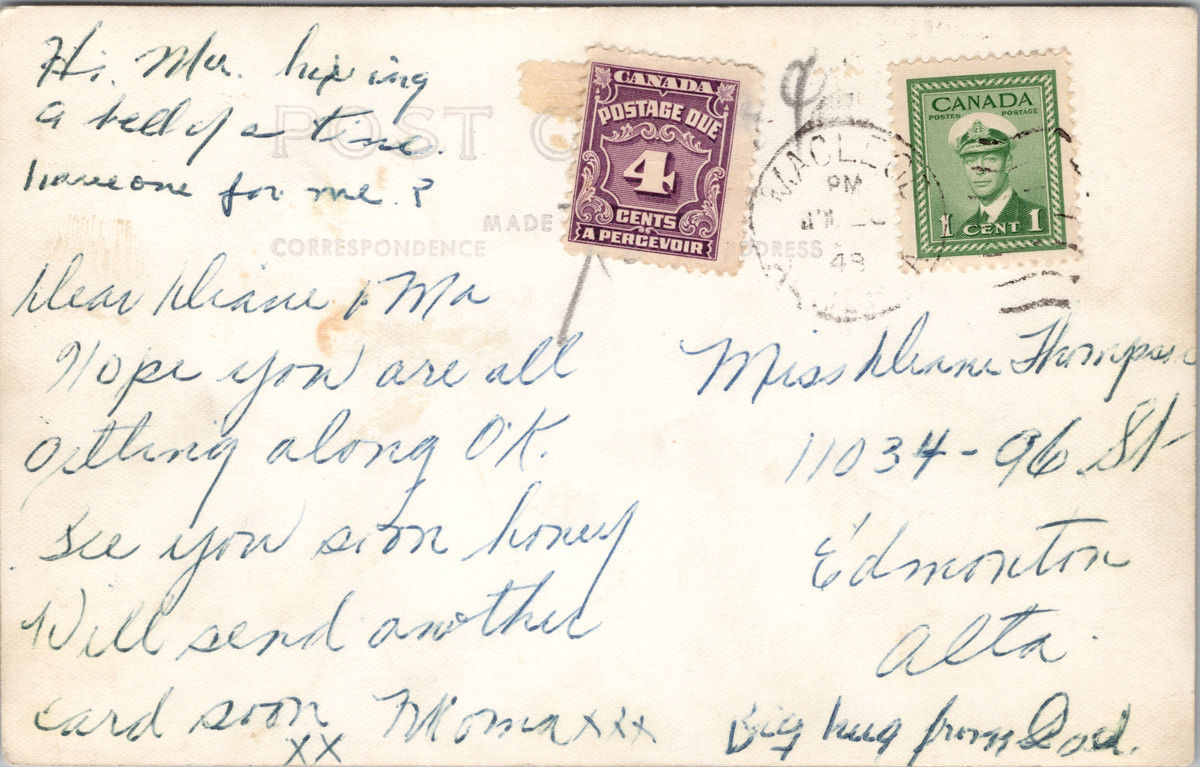 Hi. Mar. having
a hell of a time.
have one for me.?
POST C
MADE
CORRESPONDENCE
DRESS
CANADA
POSTAGE DUE
4
CENTS
A PERCEVOIR
MACLEOD
PM
48
CANADA
POSTES POSTAGE
1 CENT 1
Dear Diane & Ma
Hope you are all
getting along OK.
See you soon honey
Will send another
card soon Moma xxx
xx
Miss Diane Thompson
11034-96 St
Edmonton
Alta.
Big hug from Dad.